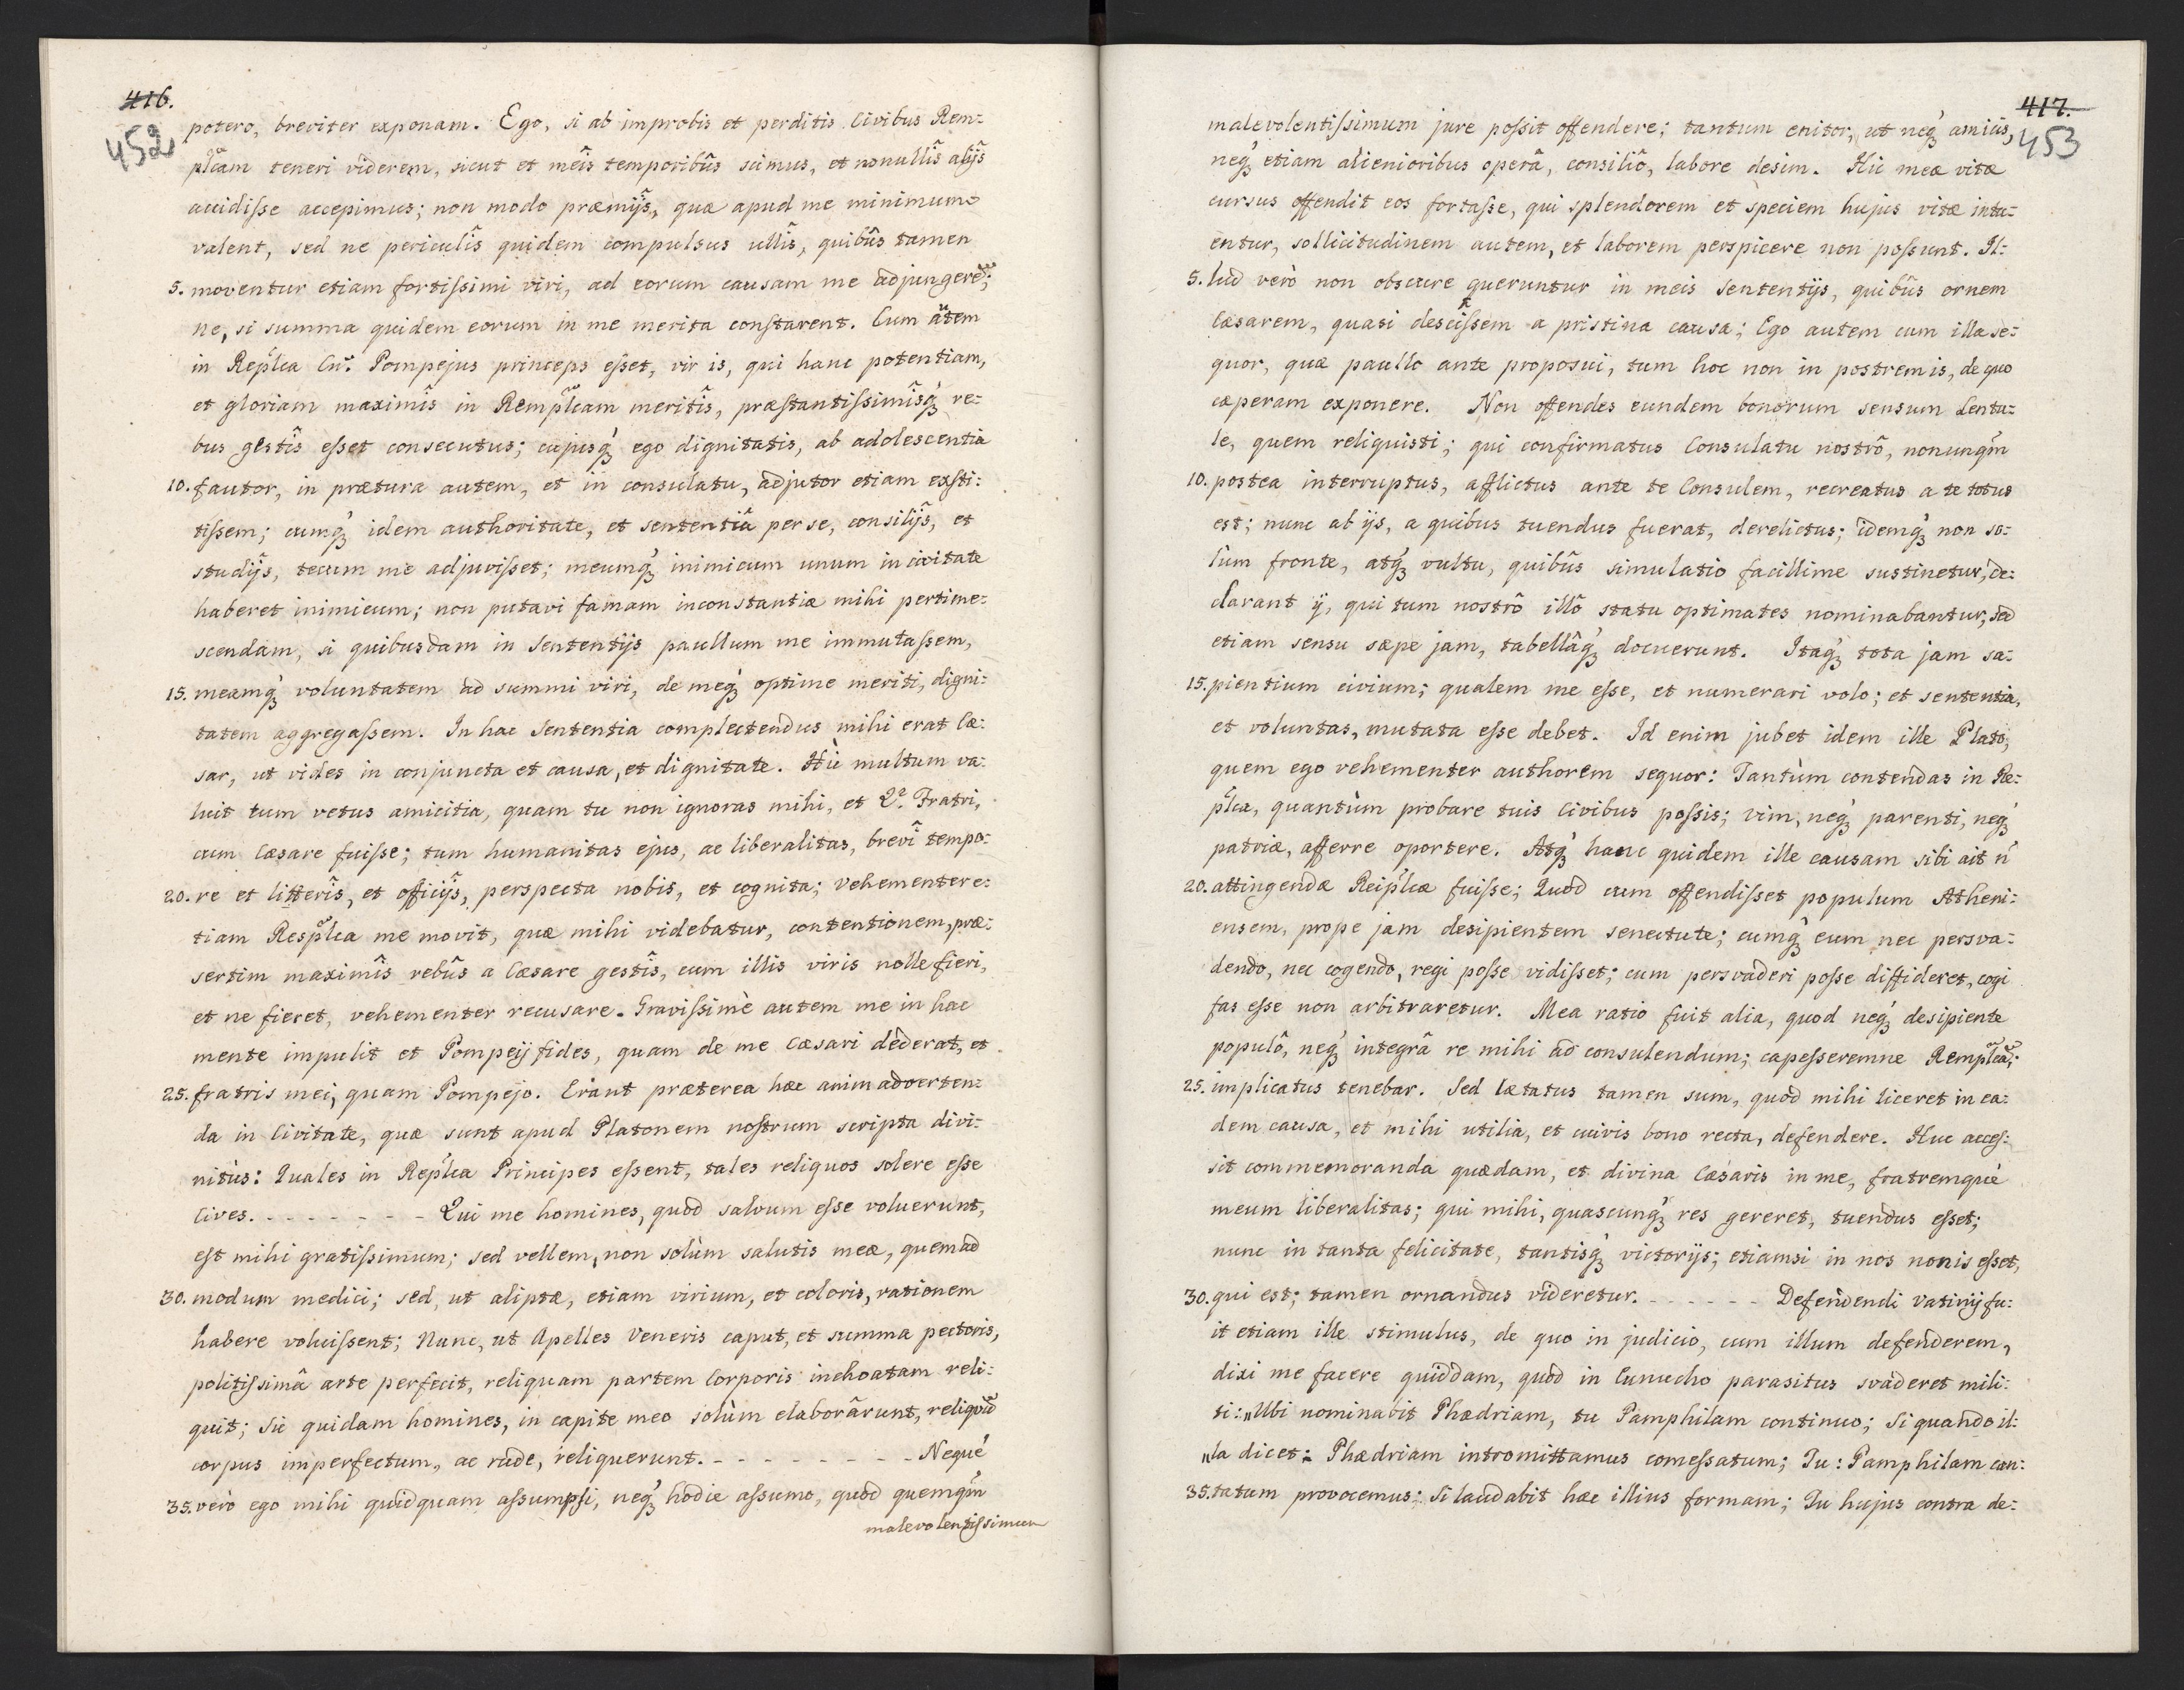 416.
452
potero, breviter exponam. Ego, si ab improbis et perditis Civibus Rem-
plcam teneri viderem, sicut et meîs temporibûs scimus, et nonullîs alijs
accidisse accepimus; non modo præmijs, quæ apud me minimum
valent, sed ne periculîs quidem compulsus ullîs, quibûs tamen
5. moventur etiam fortissimi viri, ad eorum causam me adjungerē;
ne, si summa quidem eorum in me merita constarent. Cum atem
in Replca Cn. Pompejus princeps esset, vir is, qui hanc potentiam,
et gloriam maximîs in Remplcam meritîs, præstantissimîsq́ re-
bus gestîs esset consecutus; cujusq́ ego dignitatis, ab adolescentia
10. fautor, in prætura autem, et in consulatu, adjutor etiam exsti-
tissem; cumq́ idem authoritate, et sententiâ per se, consilijs, et
studijs, tecum me adjuvisset; meumq́ inimicum unum in civitate
haberet inimicum; non putavi famam inconstantiæ mihi pertime-
scendam, si quibusdam in Sententijs paullum me immutassem,
15. meamq́ voluntatem ad summi viri, de meq́ optime meriti, digni-
tatem aggregassem. In hac Sententia complectendus mihi erat Cæ-
sar, ut vides in conjuncta et causa, et dignitate. Hîc multum va-
luit tum vetus amicitia, quam tu non ignoras mihi, et Q. Fratri,
cum Cæsare fuisse; tum humanitas ejus, ac liberalitas, brevî tempo-
20. re et litterîs, et officijs, perspecta nobis, et cognita; Vehementer e-
tiam Resplca me movit, quæ mihi videbatur, contentionem, præ-
sertim maximîs rebûs a Cæsare gestîs, cum illis viris nolle fieri,
et ne fieret, vehementer recusare. Gravissimè autem me in hac
mente impulit et Pompeij fides, quam de me Cæsari dederat, et
25. fratris mei, quam Pompejo. Erant præterea hæc animadverten-
da in Civitate, quæ sunt apud Platonem nostrum scripta divi-
nitùs: Quales in Replca Principes essent, tales reliquos solere esse
Cives. - - - - - - - Qui me homines, quod salvum esse voluerunt,
est mihi gratissimum; sed vellem, non solùm salutis meæ, quemad
30. modum medici; sed, ut aliptæ, etiam virium, et coloris, rationem
habere voluissent; Nunc, ut Apelles Veneris caput, et summa pectoris,
politissimâ arte perfecit, reliquam partem Corporis inchoatam reli-
quit; Sic quidam homines, in capite meo solùm elaborârunt, reliquū
corpus imperfectum, ac rude, reliquerunt. - - - - - - - - Neque
35. verò ego mihi quidquam assumpsi, neq́ hodie assumo, quod quemq̃m
malevolentissimum
417.
453
malevolentissimum jure possit offendere; tantum enitor, ut neq́ amicis,
neq́ etiam alienioribus operâ, consiliô, labore desim. Hic meæ vitæ
cursus offendit eos fortasse, qui splendorem et speciem hujus vitæ intu-
entur, sollicitudinem autem, et laborem perspicere non possunt. Il-
5. lud verò non obscure queruntur in meis Sententijs, quibûs ornem
Cæsarem, quasi desciîssem a pristina causa; Ego autem cum illa se-
quor, quæ paullo ante proposui, tum hoc non in postremis, de quo
cæperam exponere. Non offendes eundem bonorum sensum Lentu-
le, quem reliquisti; qui confirmatus Consulatu nostrô, nonunq̃m
10. postea interruptus, afflictus ante te Consulem, recreatus a te totus
est; nunc ab ijs, a quibus tuendus fuerat, derelictus; idemq́ non so-
lùm fronte, atq́ vultu, quibûs simulatio facillime sustinetur, de-
clarant ij, qui tum nostrô illô statu optimates nominabantur, sed
etiam sensu sæpe jam, tabellâq́ docuerunt. Itaq́ tota jam sa-
15. pientium civium; qualem me esse, et numerari volo; et sententia,
et voluntas, mutata esse debet. Id enim jubet idem ille Plato,
quem ego vehementer authorem sequor: Tantùm contendas in Re-
plca, quantùm probare tuis Civibus possis; vim, neq́ parenti, neq́
patriæ, afferre oportere. Atq́ hanc quidem ille causam sibi ait ń
20. attingendæ Reiplcæ fuisse; Quod cum offendisset populum Atheni-
ensem, prope jam desipientem senectute; cumq́ eum nec persva-
dendo, nec cogendo, regi posse vidisset; cum persvaderi posse diffideret, cogi
fas esse non arbitraretur. Mea ratio fuit alia, quod neq́ desipiente
populô, neq́ integrâ re mihi ad consulendum; capesseremne Remplcā;
25. implicatus tenebar. Sed lætatus tamen sum, quod mihi liceret in ea-
dem causa, et mihi utilia, et cuivis bono recta, defendere. Huc acces-
sit commemoranda quædam, et divina Cæsaris in me, fratremque
meum liberalitas; qui mihi, quascunq́ res gereret, tuendus esset;
nunc in tanta felicitate, tantisq́ victorijs; etiamsi in nos non is esset,
30. qui est; tamen ornandus videretur. - - - - - - Defendendi Vatinij fu-
it etiam ille stimulus, de quo in judicio, cum illum defenderem,
dixi me facere quiddam, quod in Eunucho parasitus svaderet mili-
ti: „Ubi nominabit Phædriam, tu Pamphilam continuo; Si quando il-
„la dicet: Phædriam intromittamus comessatum; Tu: Pamphilam can-
35. tatum provocemus: Si laudabit hæc illius formam; Tu hujus contra de-